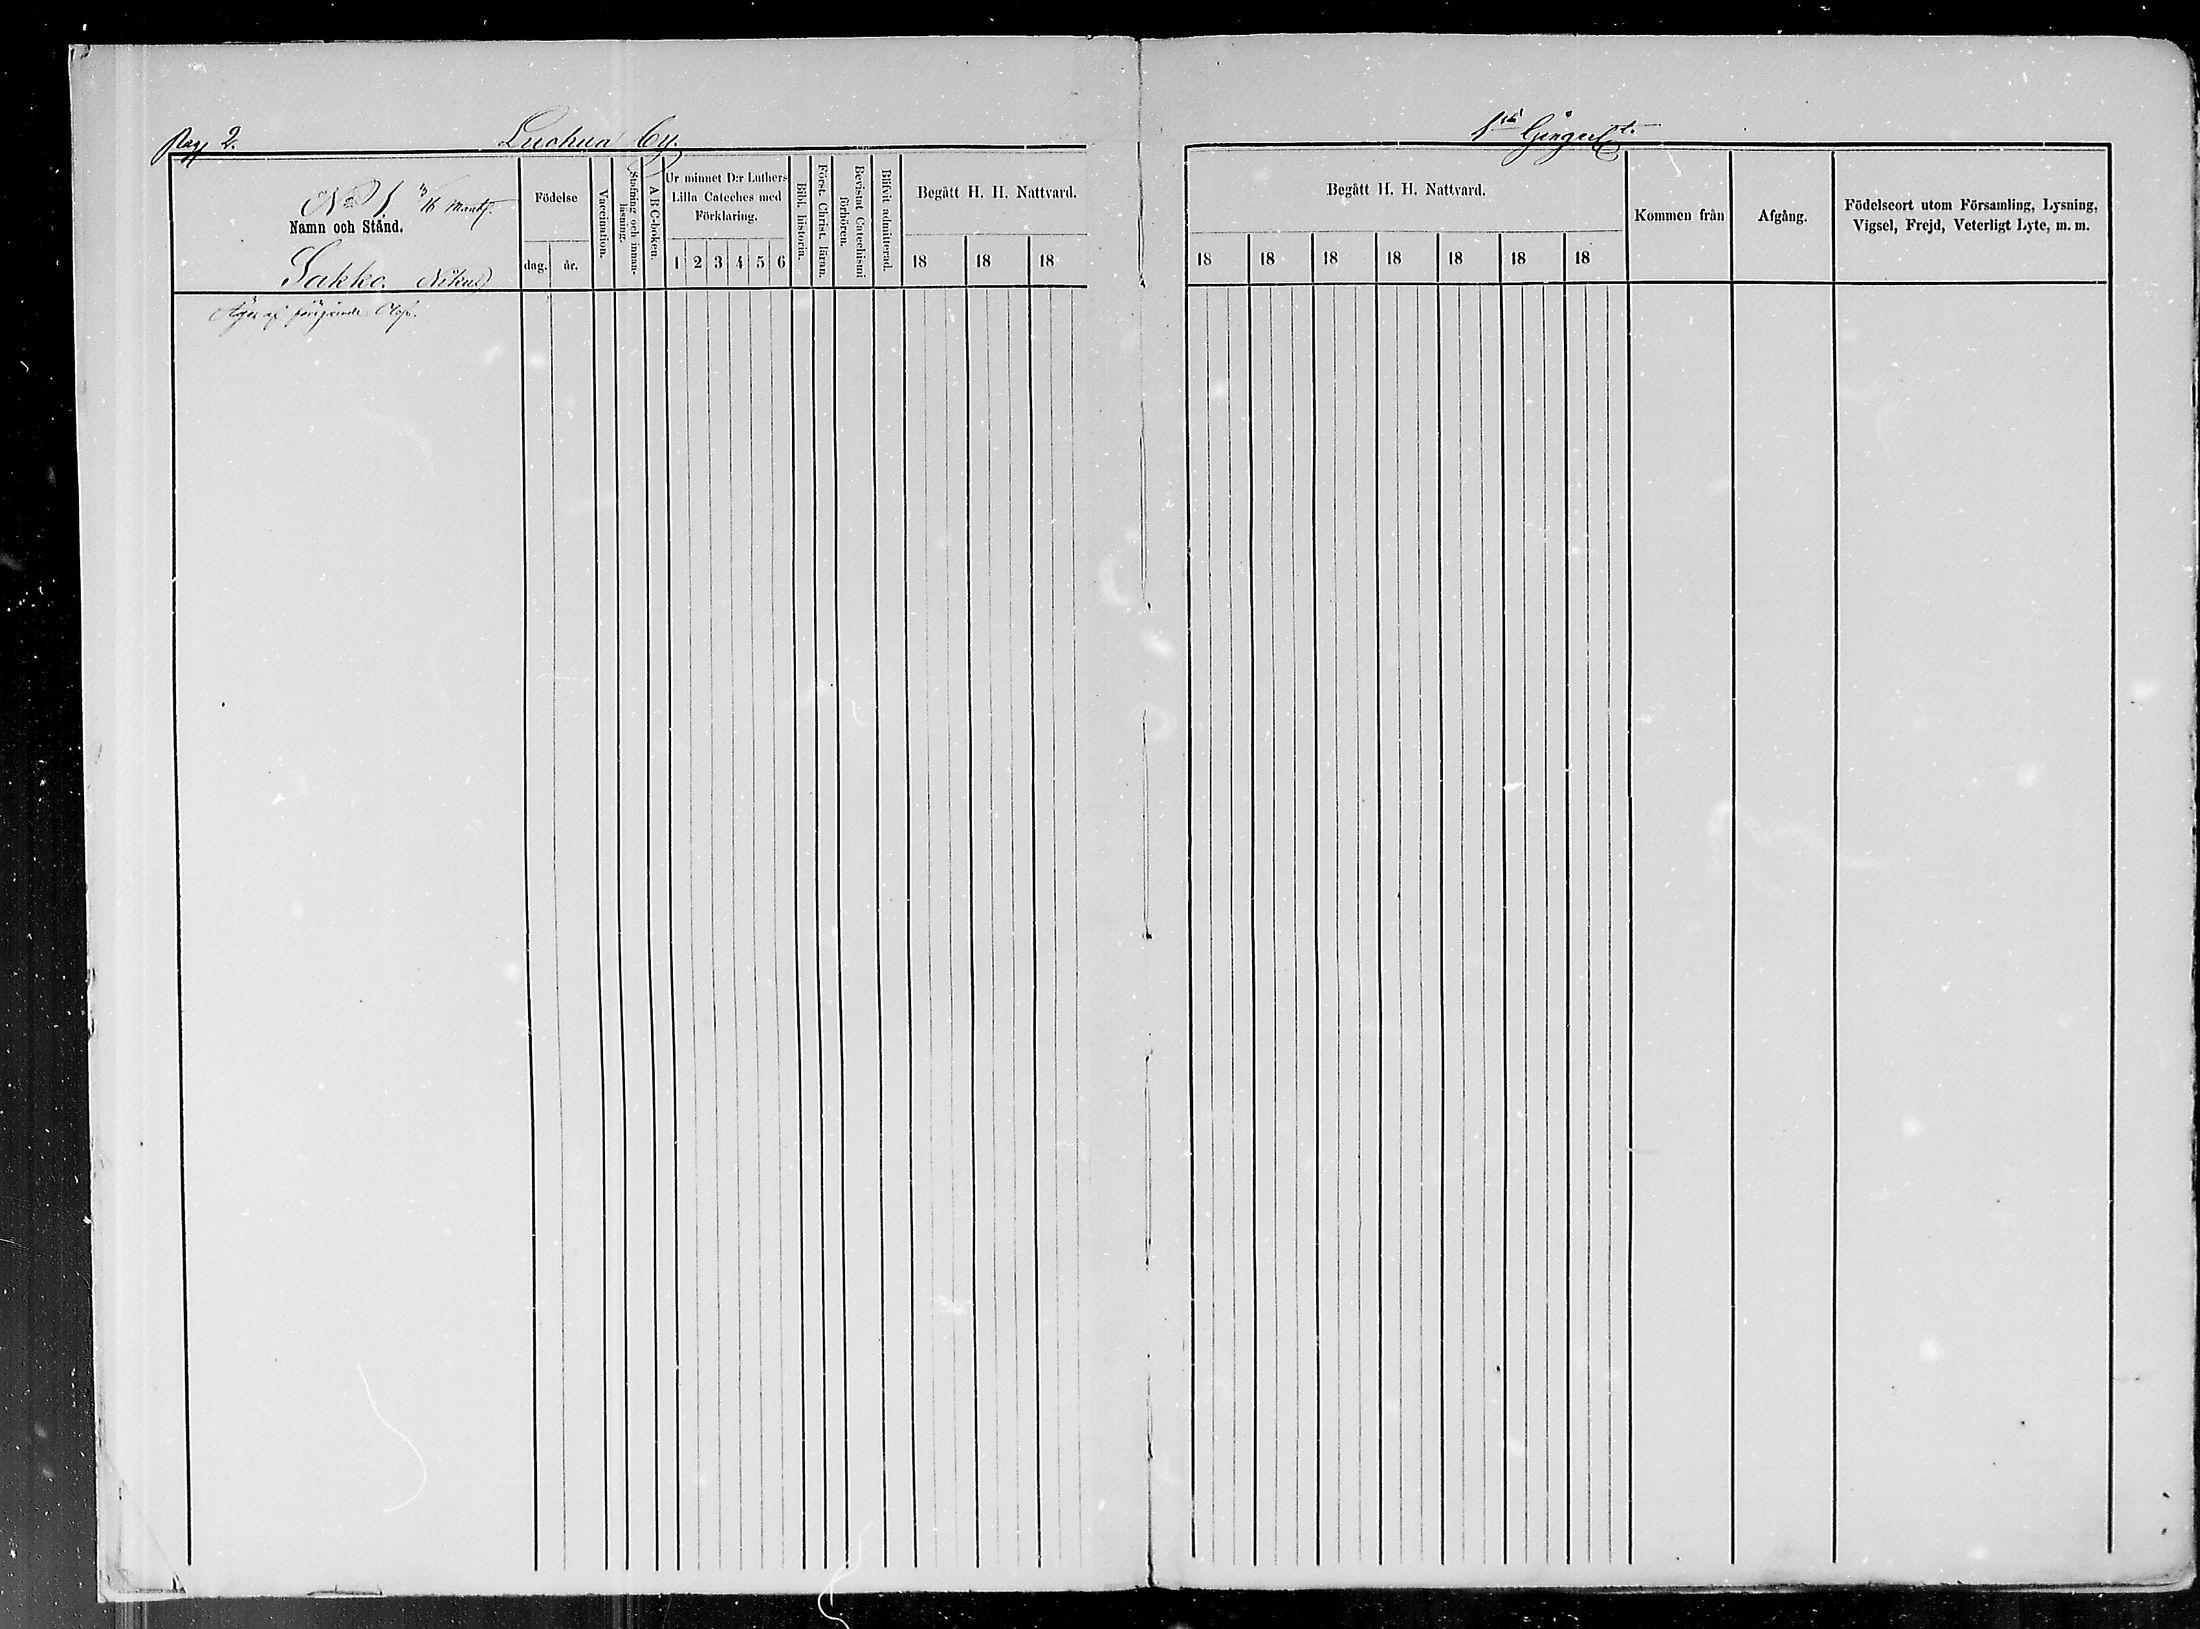 Pag 2. Luohua by.
No 1 3/16 Mantl.
Namn och Stånd.
Sakko.
Födelse
dag. år.
Vaccination.
Stafning och innan-
läsning.
A B C-boken.
Ur minnet D:r Luthers
Lilla Cateches med
Förklaring.
1 2 3 4 5 6
Bibl. historia.
Först. Christ. läran.
Bevistat Catechismi
förhören.
Blifvit admitterad.
Begått H. H. Nattvard.
18 18 18
Begått H. H. Nattvard.
18 18 18 18 18 18 18
Kommen från
Afgång.
Födelseort utom Församling, Lysning,
Vigsel, Frejd, Veterligt Lyte, m. m.